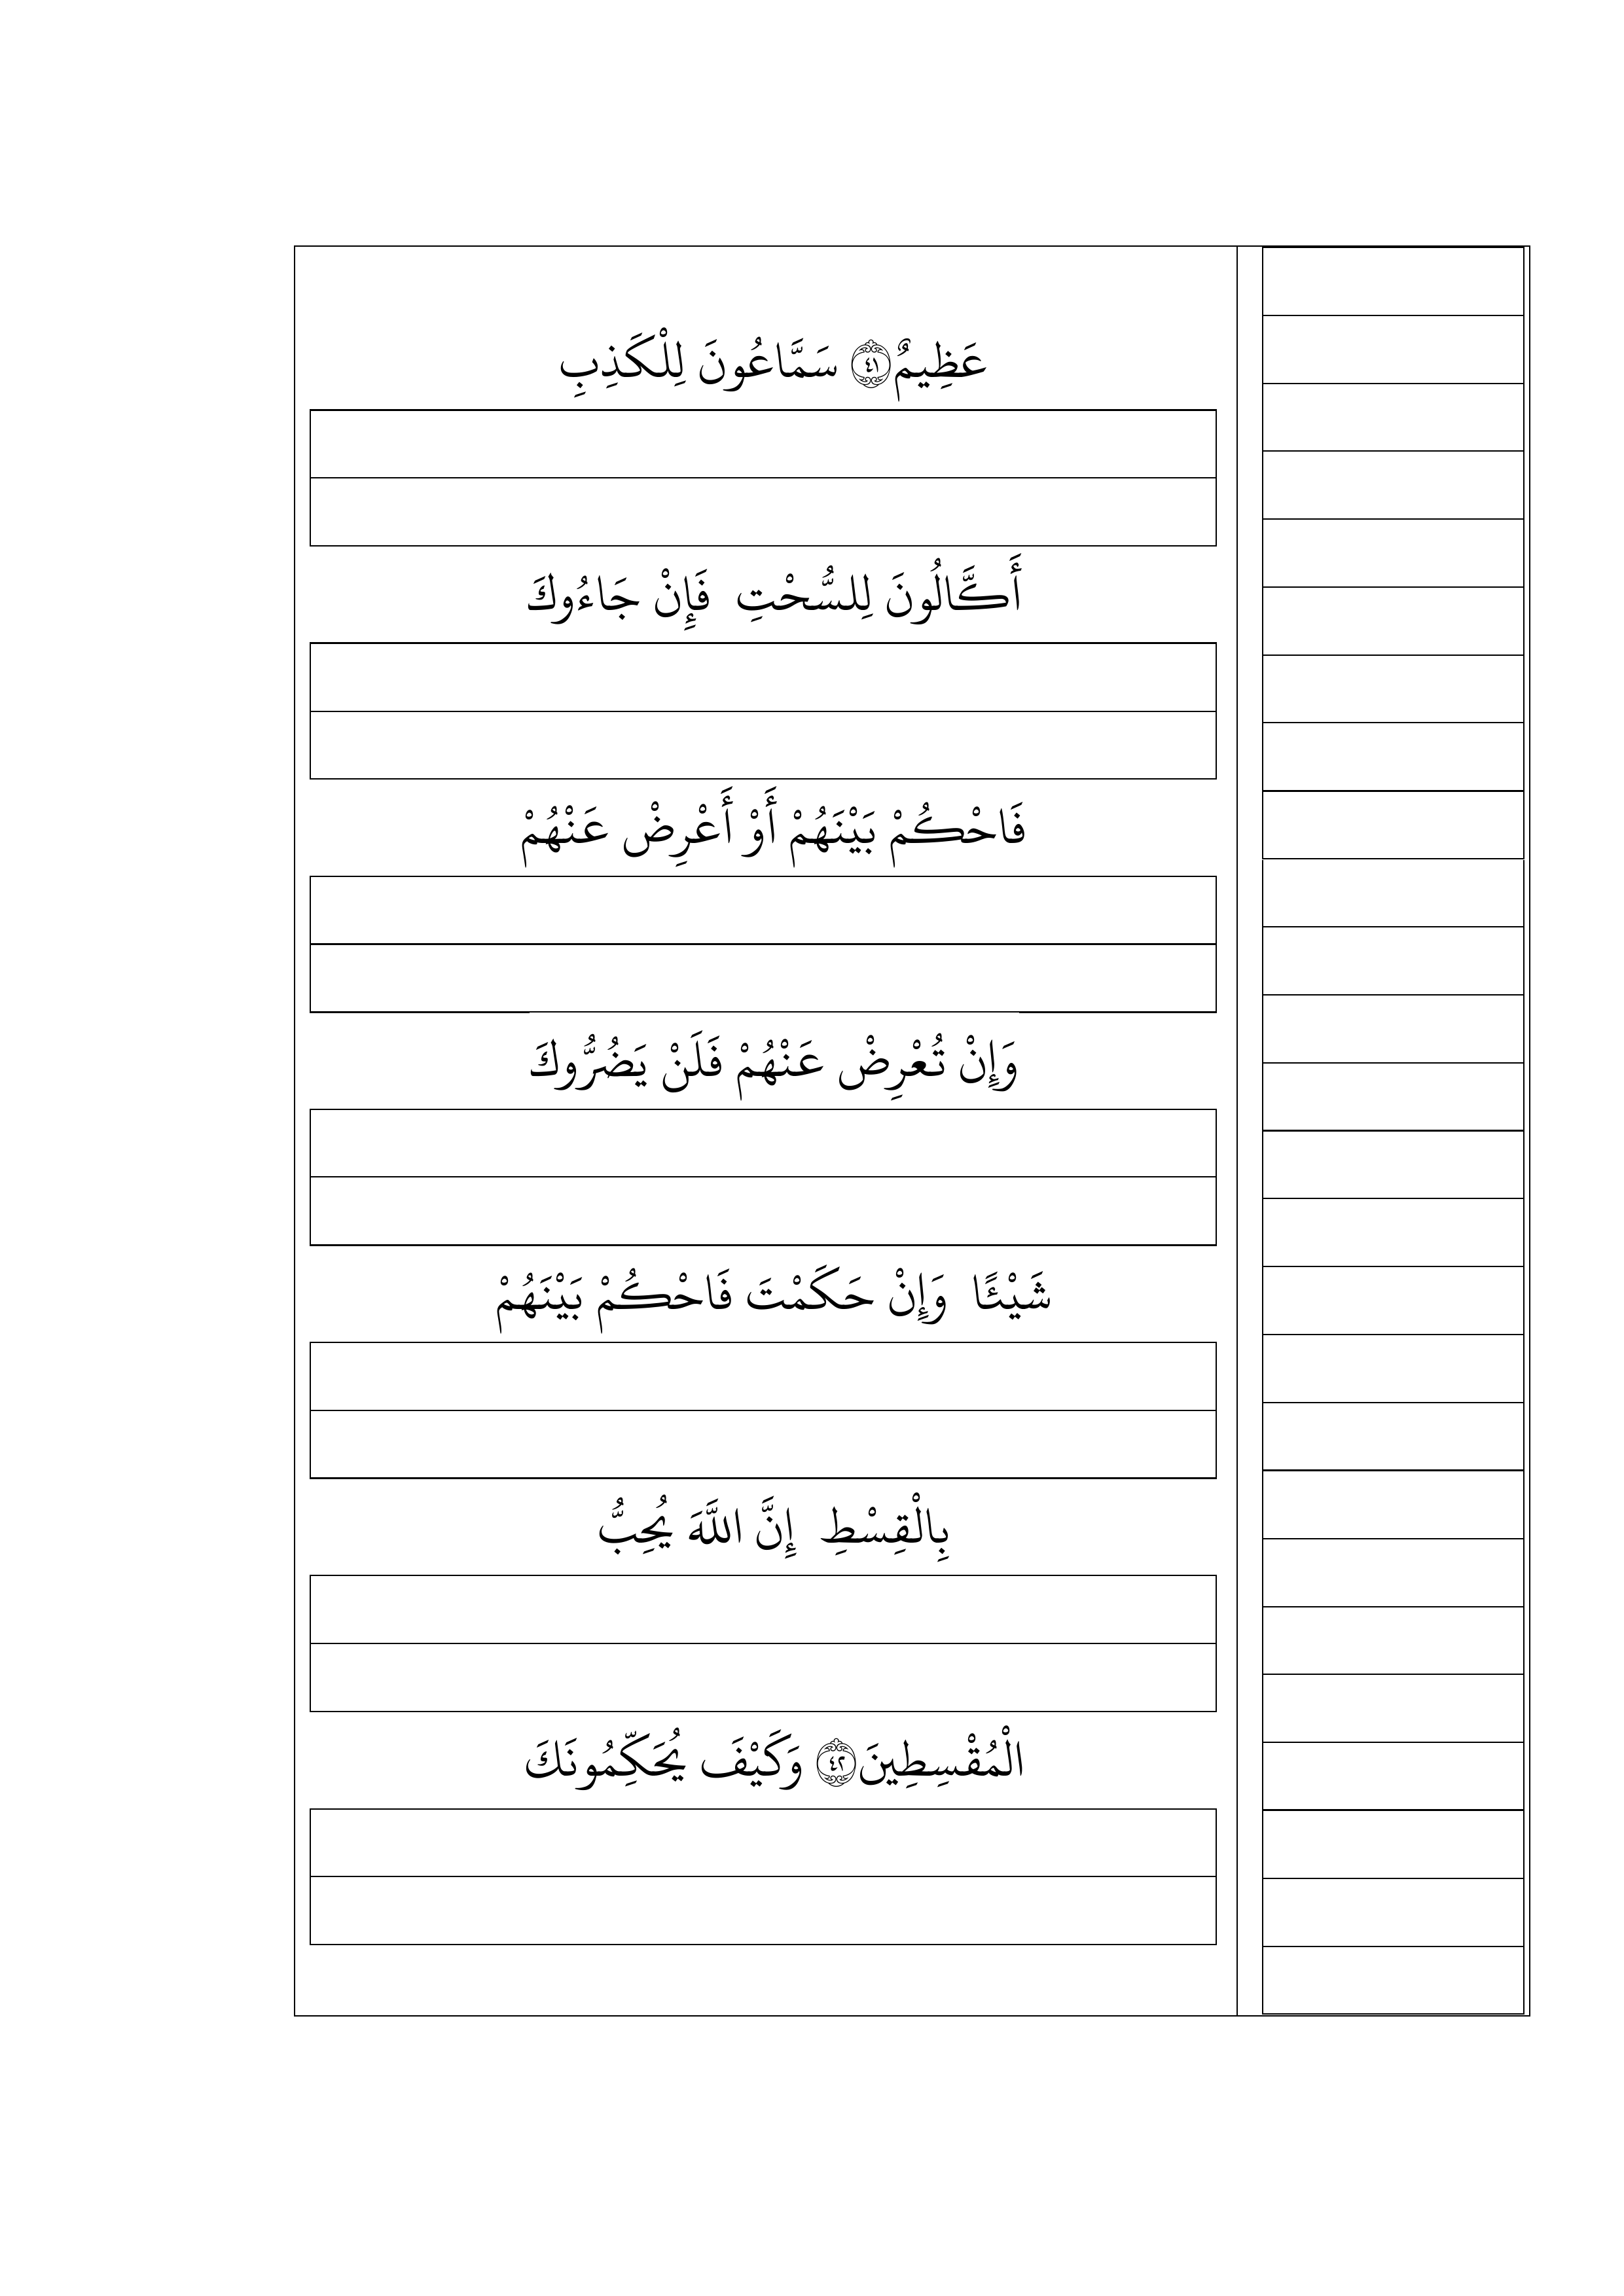 عَظِيمٌ ﴿٤١﴾ سَمَّاعُونَ لِلْكَذِبِ
أَكَّالُونَ لِلسُّحْتِ فَإِنْ جَاءُوكَ
فَاحْكُمْ بَيْنَهُمْ أَوْ أَعْرِضْ عَنْهُمْ
وَإِنْ تُعْرِضْ عَنْهُمْ فَلَنْ يَضُرُّوكَ
شَيْئًا وَإِنْ حَكَمْتَ فَاحْكُمْ بَيْنَهُمْ
بِالْقِسْطِ إِنَّ اللَّهَ يُحِبُّ
الْمُقْسِطِينَ ﴿٤٢﴾ وَكَيْفَ يُحَكِّمُونَكَ